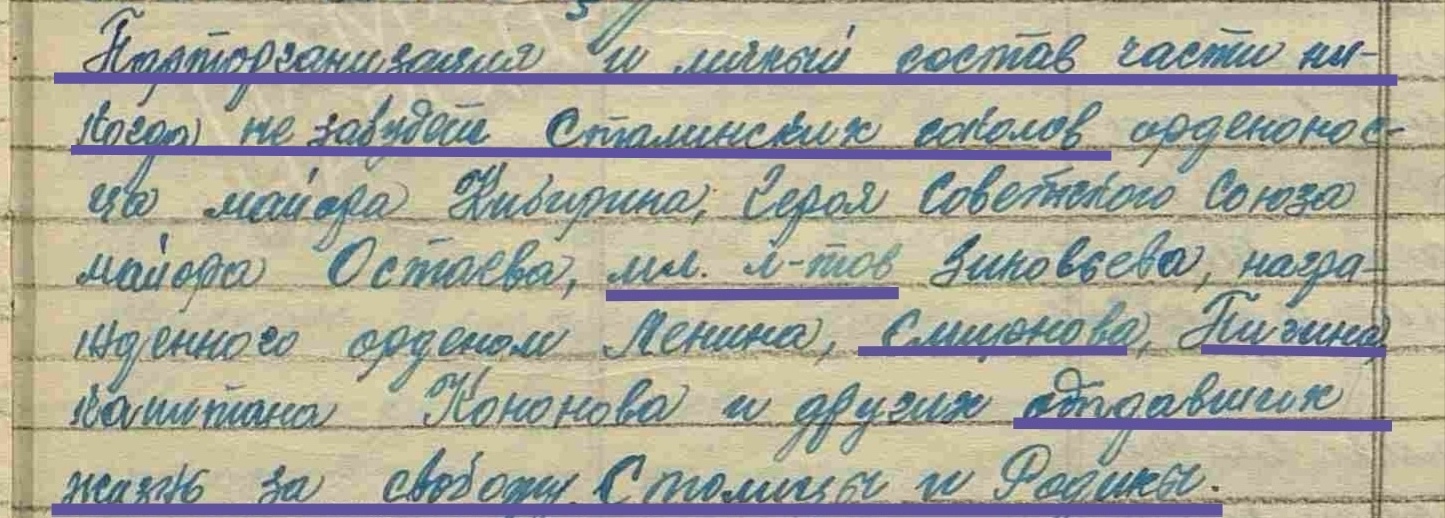 Парторганизация и личный состав части ни-
когда не забудет Сталинских соколов орденонос-
ца майора Кибирина, Героя Советского Союза
майора Остаева, мл. л-тов Зиновьева, награ-
жденного орденом Ленина, Смирнова, Пигина,
капитана Кононова и других отдавших
жизнь за свободу Столицы и Родины.